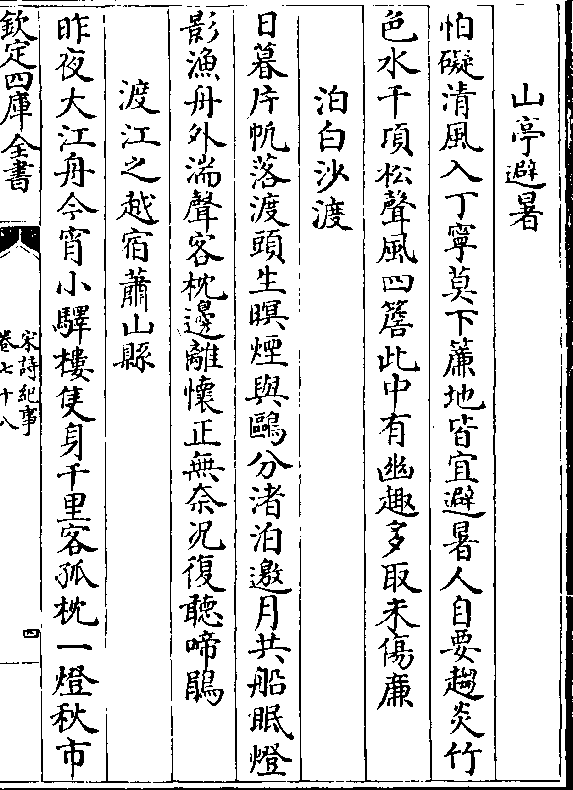 山亭避暑
怕礙清風入丁寧莫下簾地皆宜避暑人自要趨炎竹
色水千項松聲風四簷此中有幽趣多取未傷廉
泊白沙渡
日暮片帆落渡頭生暝煙與鷗分渚泊邀月共船眠燈
影漁舟外湍聲客枕邊離懷正無奈况復聽啼鵑
渡江之越宿蕭山縣
昨夜大江舟今宵小驛樓隻身千里客孤枕一燈秋市
欽定四庫全書
宋詩紀事
卷七十八
四